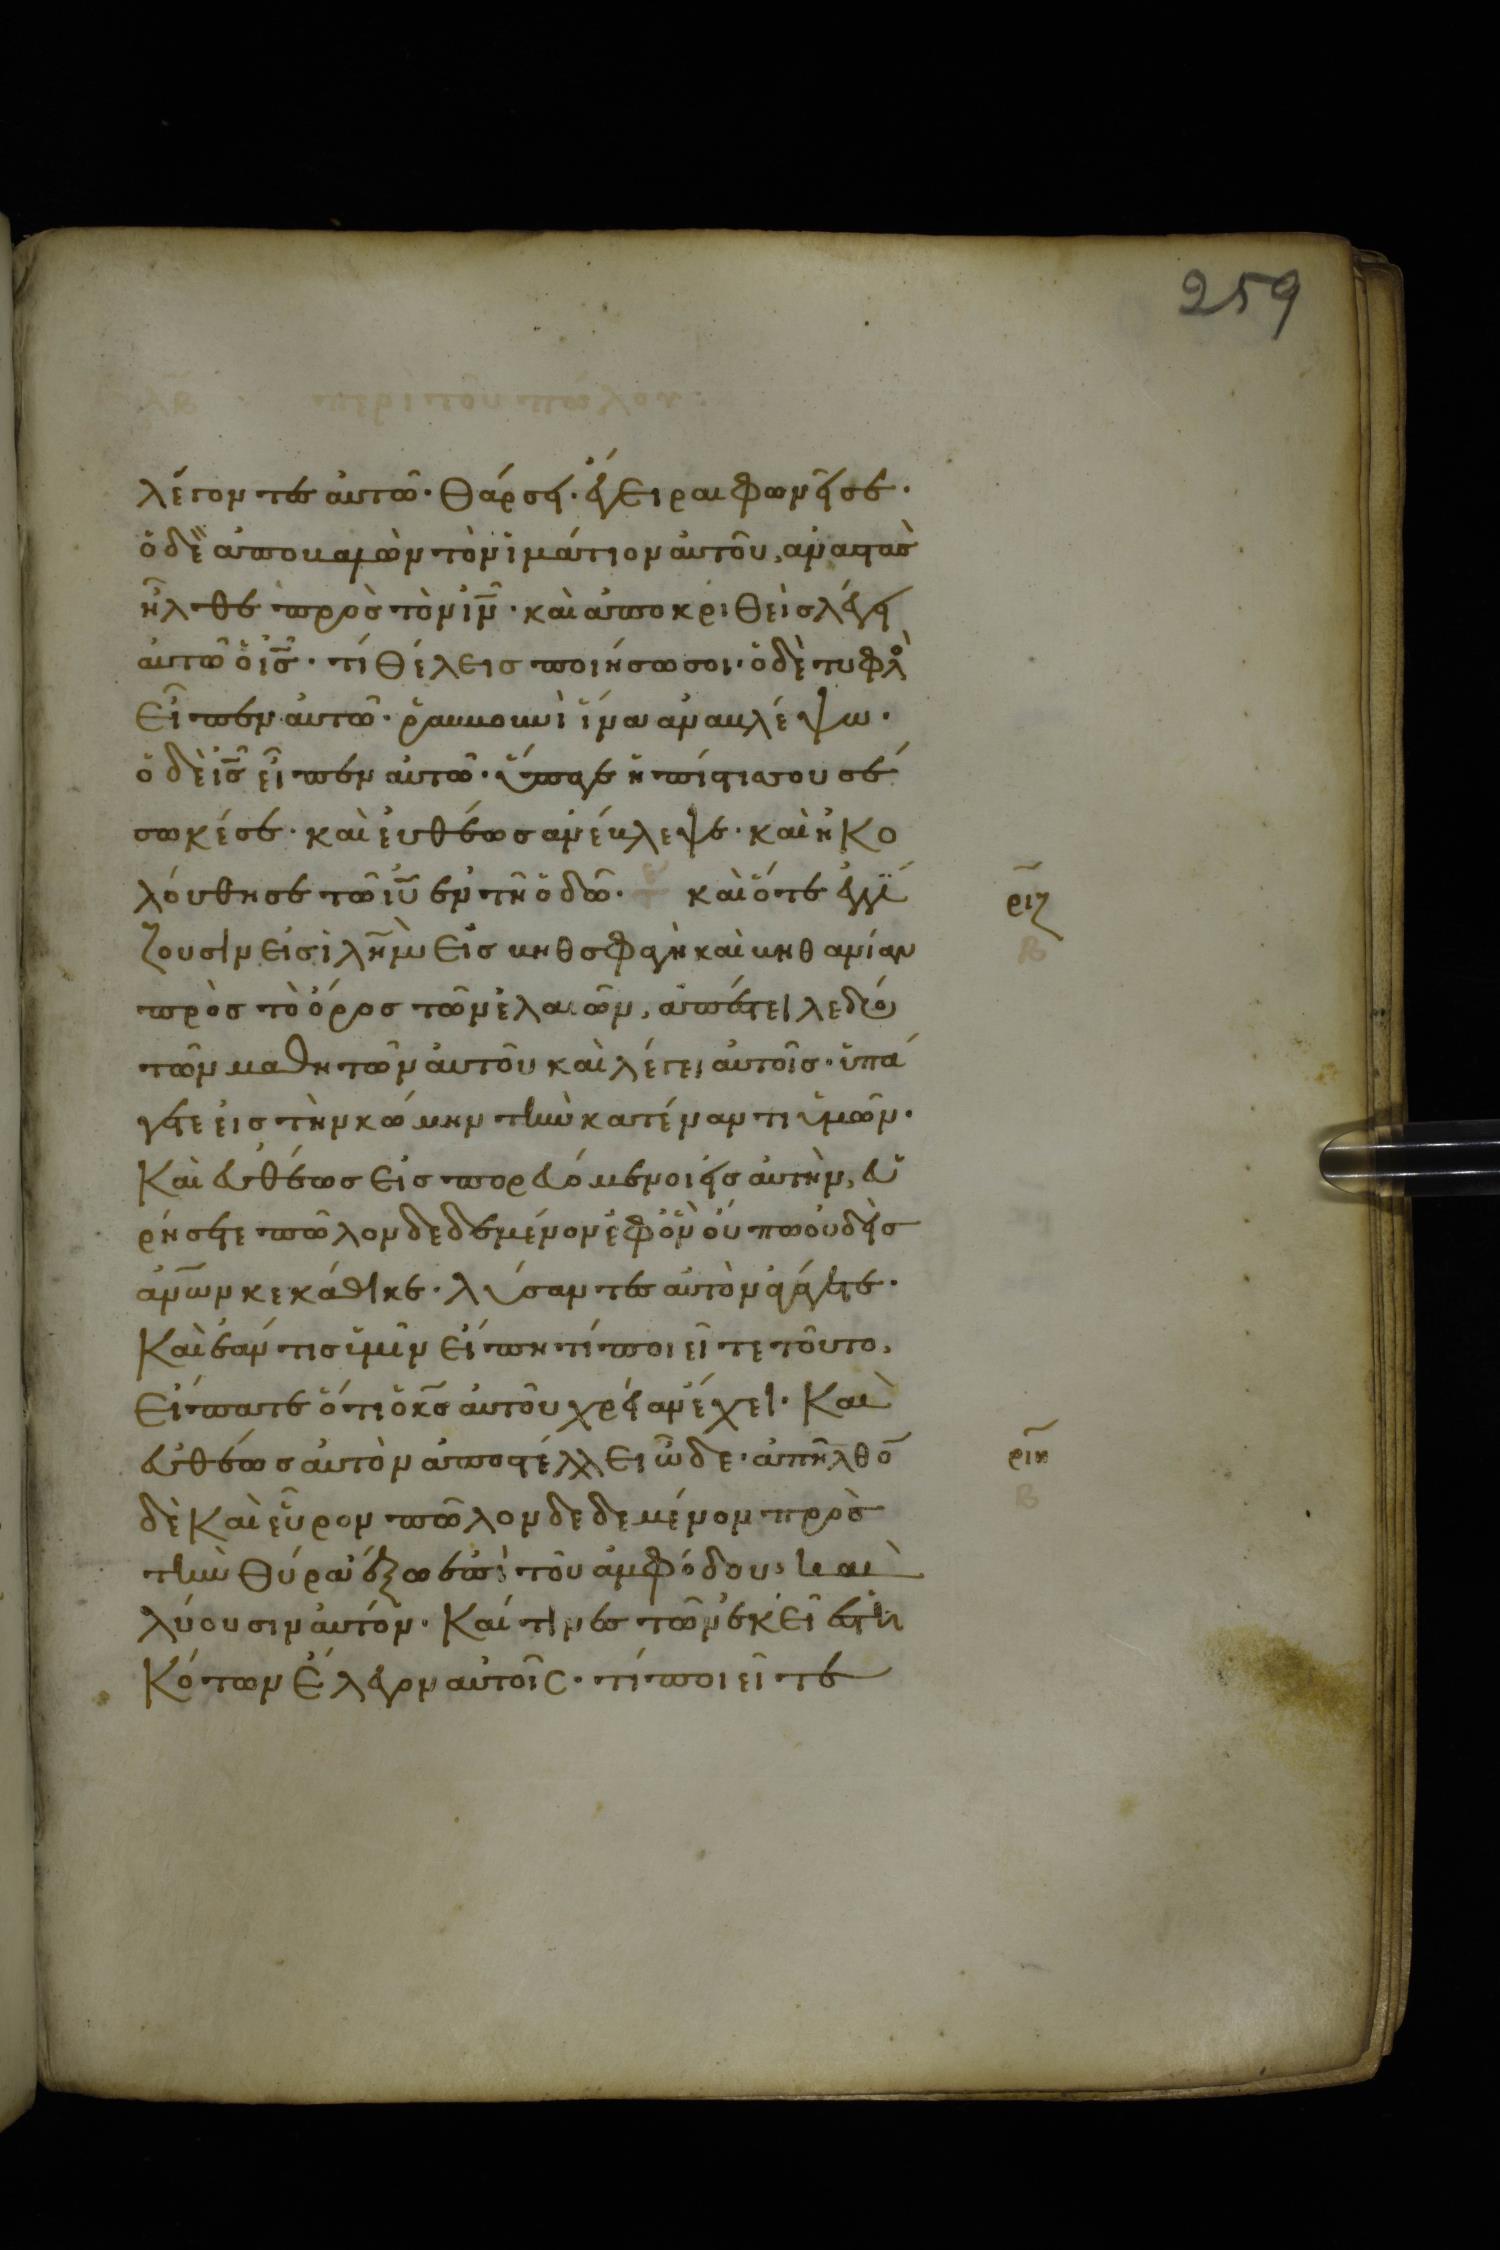 259
λέγοντες αὐτῶ· θάρσει· ἔγειραι φωνεῖ σε·
ὁ δὲ ἀποβαλὼν τὸ ἱμάτιον αὐτοῦ, ἀναστὰσ
ἦλθε πρὸσ τὸν ι̅ν̅· καὶ ἀποκριθεὶσ λέγει
αὐτῶ ὁ ι̅σ̅· τί θέλεισ ποιήσω σοι· ὁ δὲ τυφλὸ
εἶπεν αὐτῶ· ραββουνὶ ἵνα ἀναβλέψω·
ὁ δὲ ι̅σ̅ εἶπεν αὐτῶ· ὕπαγε ἡ πίστισ σου σέ
σωκέ σε· καὶ εὐθέωσ ἀνέβλεψε· καὶ ἠκο
λούθησε τῶ ι̅υ̅ ἐν τῆ ὁδῶ· καὶ ὅτε ἐγγί
ζουσιν εἰσ ι̅λ̅η̅μ̅ εἰσ βηθσφαγὴ καὶ βηθανίαν
πρὸσ τὸ ὄροσ τῶν ἐλαιῶν, ἀποστέλλει δύο
τῶν μαθητῶν αὐτοῦ καὶ λέγει αὐτοῖσ· ὑπά
γετε εἰσ τὴν κώμην τὴν κατέναντι ὑμῶν·
Καὶ εὐθέωσ εἰσπορευόμενοι εἰσ αὐτὴν, εὑ
ρήσετε πῶλον δεδεμένον ἐφ ὃν οὔπω οὐδεὶσ
α̅ν̅ω̅ν κεκάθικε· λύσαντεσ αὐτὸν ἀγάγετε·
Καὶ ἐάν τισ ὑμῖν εἴπη τί ποιεῖτε τοῦτο,
εἴπατε ὅτι ὁ κ̅σ̅ αὐτοῦ χρείαν ἔχει· Καὶ
εὐθέωσ αὐτὸν ἀποστέλλει ὧδε· ἀπῆλθο̅
δὲ Καὶ εὗρον πῶλον δεδεμένον πρὸσ
τὴν θύραν ἔξω ἐπὶ τοῦ ἀμφόδου, καὶ
λύουσιν αὐτόν· Καί τινεσ τῶν ἐκεῖ ἑστη
Κότων ἔλεγον αὐτοῖς· τί ποιεῖτε
ριζ
β
ριη
β